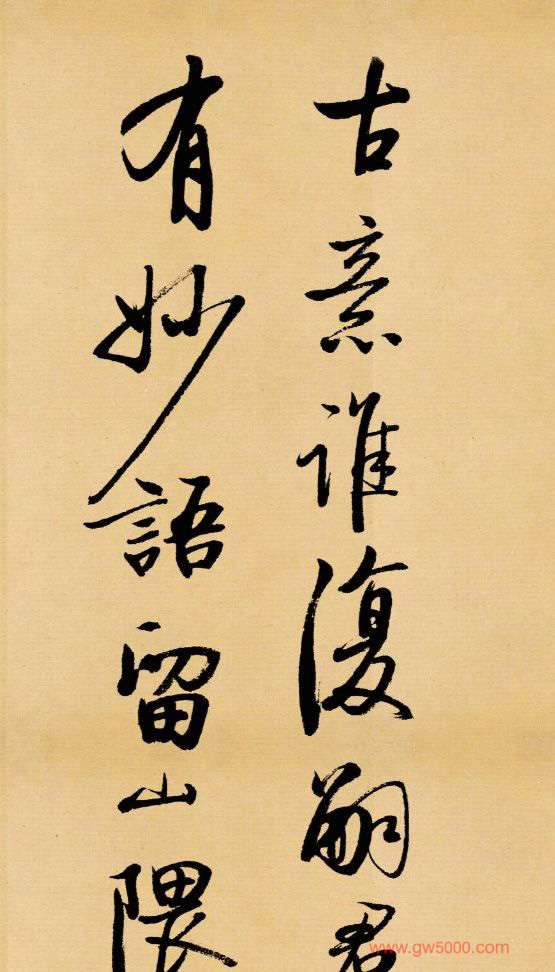 古意誰復嗣君
有妙語留山隈
www.gw5000.com